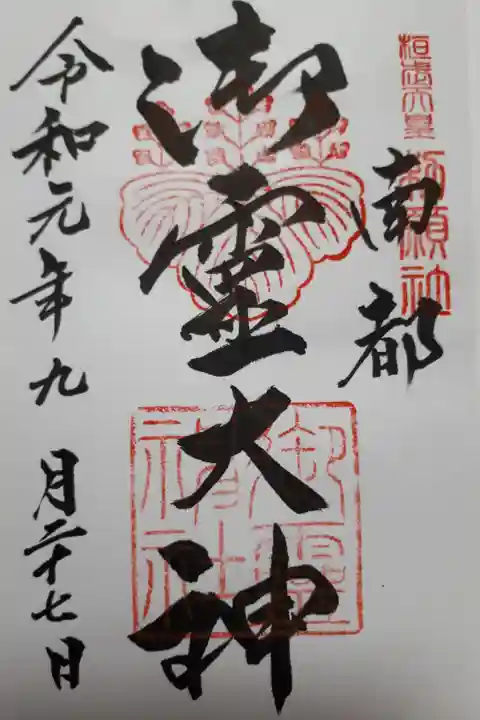 桓武天皇勅願社
南都
御霊大神
御霊神社
令和元年九月二十七日